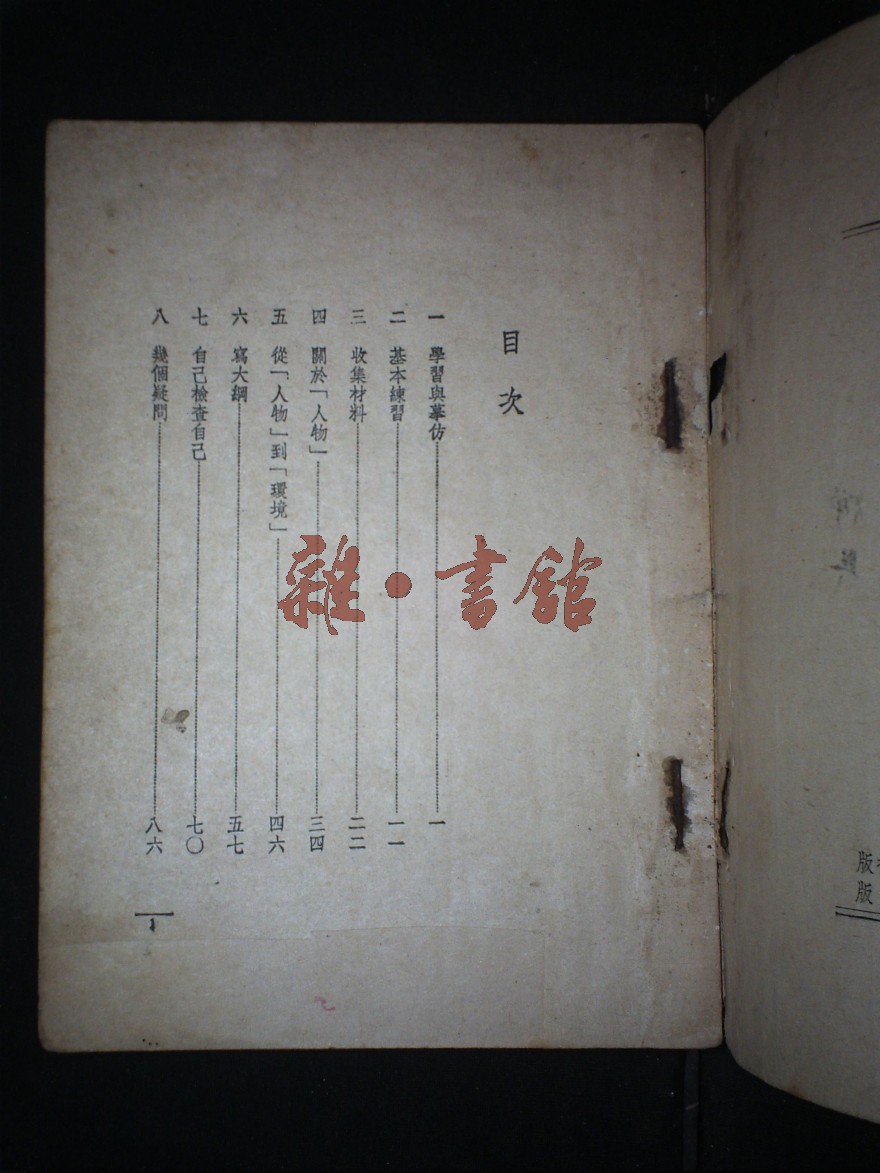 目次
一 學習與摹仿 一
二 基本練習 一一
三 收集材料 二二
四 關於「人物」 三四
五 從「人物」到「環境」 四六
六 寫大綱 五七
七 自己檢查自己 七〇
八 幾個疑問 八六
1
雜・書館
版
版